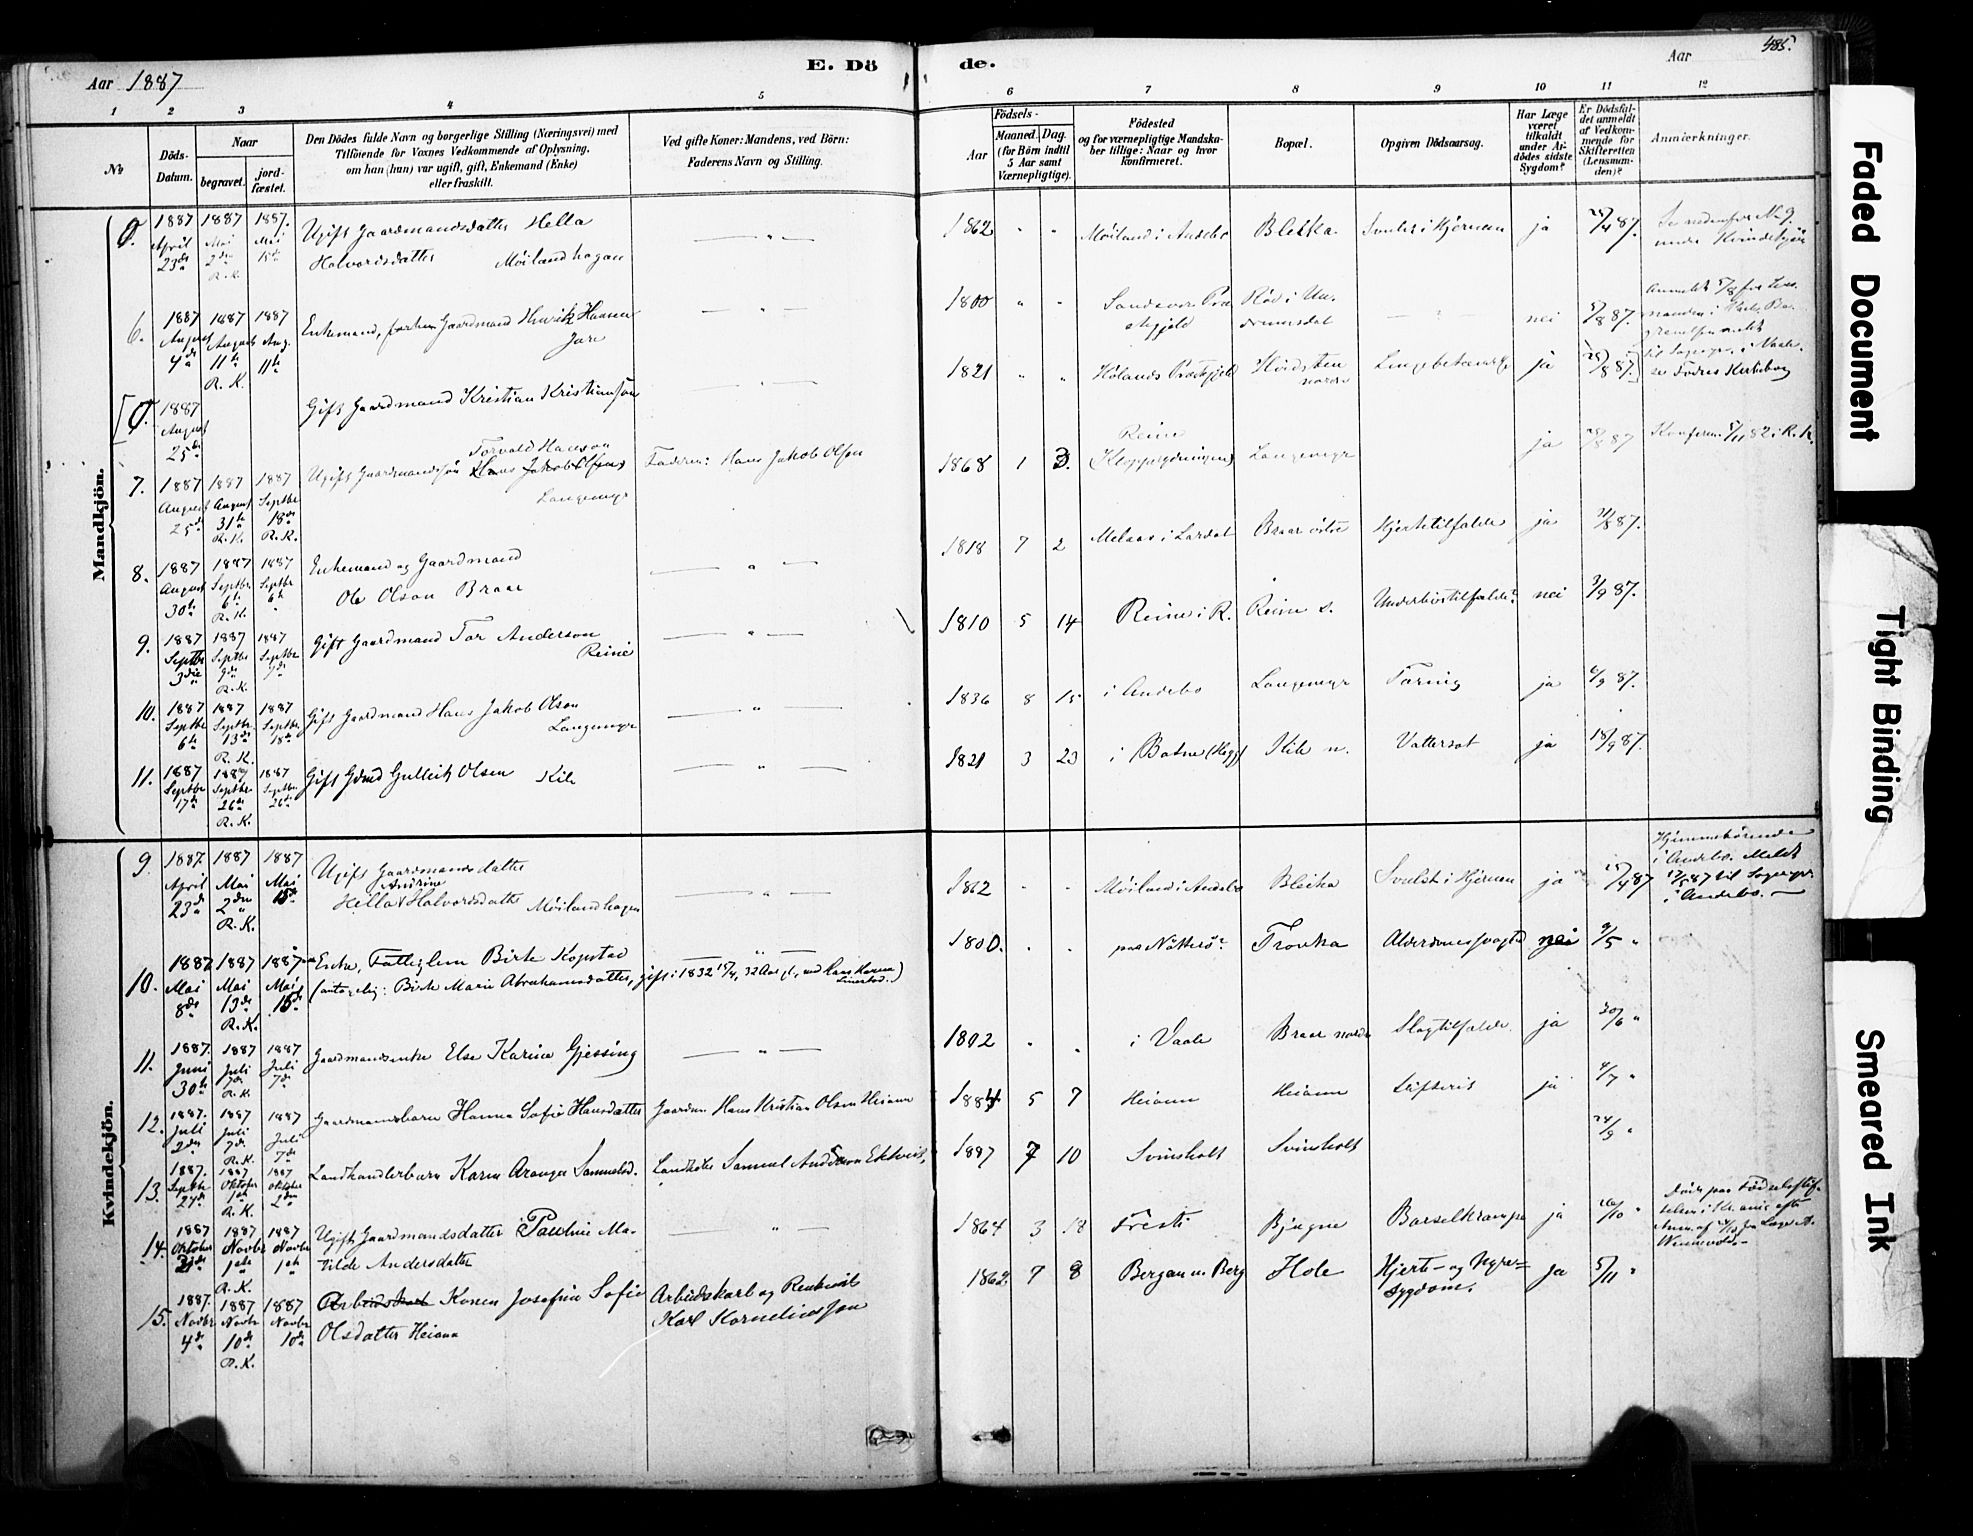 Aar 1887
E. Dö
de.
Aar
485.
1 2 3 4 5 6 7 8 9 10 11 12
No
Döds-
Datum.
Naar
begravet.
jord-
fæstet.
Den Dödes fulde Navn og borgerlige Stilling (Næringsvei) med
Tilföiende for Voxnes Vedkommende af Oplysning,
om han (hun) var ugift, gift, Enkemand (Enke)
eller fraskilt.
Ved gifte Koner: Mandens, ved Börn:
Faderens Navn og Stilling.
Födsels-
Aar
Maaned. Dag.
(for Börn indtil
5 Aar samt
Værnepligtige).
Födested
og for værnepligtige Mandska-
ber tillige: Naar og hvor
konfirmeret.
Bopæl.
Opgiven Dödsaarsag.
Har Læge
været
tilkaldt
under Af-
dödes sidste
Sygdom?
Er Dödsfal-
det anmeldt
af Vedkom-
mende for
Skifteretten
(Lensman-
den)?
Anmærkninger.
Mandkjön.
0. 1887 April 23de 1887 Mai 2den R. K. 1887. Mai 15de
Ugift Gaardmandsdatter Hella
Halvorsdatter Møilandhagan
1862 " " Møiland i Andebo Blekka Svulst i Hjernen ja 25/4 87.
Se nedenfor No 9
under Kvindekjön
6. 1887 August 4de 1887 August 11te R. K. 1887 Aug. 11te
Enkemand, forhen Gaardmand Henrik Hansen
Jare
1800 " " Sandesver Præ-
stegjeld nei 5/8 87.
[0. 1887 August 25de
Gift Gaardmand Kristian Kristianson
1821 " " Hølands Præstegjeld ja 25/8 87.]
7. 1887 August 25de 1887 August 31te R. K. 1887 Septbr 18de R. K.
Torvald Hanson
Ugift Gaardmandssøn Hans Jakob Olsens
Langemyr
Faderen: Hans Jakob Olson
1868 1 3. Reine
Langemyr ja 87
Konferm. 5/11 82 i R. K.
8. 1887 August 30te 1887 Septbr 6te R. K. 1887 Septbr 6te
Enkemand og Gaardmand
Ole Olson Braar
1818 7 2 Melaas i Lardal Braar østre Hjertetilfælde ja 31/8 87.
9. 1887 Septbr 3die 1887 Septbr 9de R. K. 1887 Septbr 9de
Gift Gaardmand Tor Anderson
Reine
1810 5 14 Reine i R. Reine s. Underlivstilfælde? nei 3/9 87.
10. 1887 Septbr 6te 1887 Septbr. 13de R. K. 1887 Septbr 18de
Gift Gaardmand Hans Jakob Olson
Langemyr
1836 8 15 i Andebo Langemyr Tæring ja 6/9 87.
11. 1887 Septbr 17de 1887 Septbr 26de R. K. 1887 Septbr. 26de
Gift Gdmd Gulleik Olsen Kile
1821 3 23 i Botne (Hegg) Kile n. Vattersot ja 18/9 87.
Kvindekjön.
9 1887. April 23de 1887 Mai 2den R. K. 1887 Mai 15de
Ugift Gaardmandsdatter
Andrine
Hella Halvorsdatter Møilandhagen
1862 " " Møiland i Andebo Bleika Svulst i Hjernen ja 25/4 87
Hjemmehörende
i Andebo. Meldt
12/5 87 til Sognepr.
i Andebo.
10. 1887 Mai 8de 1887 Mai 13de R. K. 1887 Mai 15de
Enke, Fattiglem Birte Kopstad
(antagelig: Birte Marie Abrahamsdatter, gift i 1832 15/4, 32 Aar gl., med Hans Hansen
1800. " " paa Nøtterö? Trovka Alderdomssvaghed nei 9/5 "
11. 1887. Juni 30te 1887 Juli 7de R. K. 1887 Juli 7de
Gaardmandsenke Else Karine Gjessing
1802 " " i Vaale Braar nordre Slagtilfælde. ja 30/6 "
12. 1887. Juli 2den 1887 Juli 7de R. K. 1887 Juli 7de
Gaardmandsbarn Hanna Sofie Hansdatter
Gaardm. Hans Kristian Olsen Heiann
1884 5 7 Heiann Heiann Difterit ja 4/7 "
13. 1887. Septbr 24de 1887 Oktober 1ste R. K. 1887 Oktober 2den
Landhandlerbarn Karen Aranga Samuelsd.
Landhdler Samuel Anderson Ektveit,
1887 7 10 Svinsholt Svinsholt 24/9 "
14. 1887 Oktober 21de 1887 Novbr 1ste R. K. 1887 Novbr 1ste
Ugift Gaardmandsdatter Pauline Ma-
tilde Andersdatter
1864 3 18 Fresti Bjugne Barselkrampe ja 26/10 "
Död paa Födselsstif-
telsen i Kr.ania
15. 1887. Novbr 4de 1887 Novbr 10de R. K. 1887 Novbr 10de
Arbeidskarl Konen Josefine Sofie
Olsdatter Heiann
Arbeidskarl og
Karl Korneliusson
1862 7 8 Bergan u. Berg Hole Hjerte- og Nyre-
sygdom. ja 5/11 "
Faded Document
Tight Binding
Smeared Ink